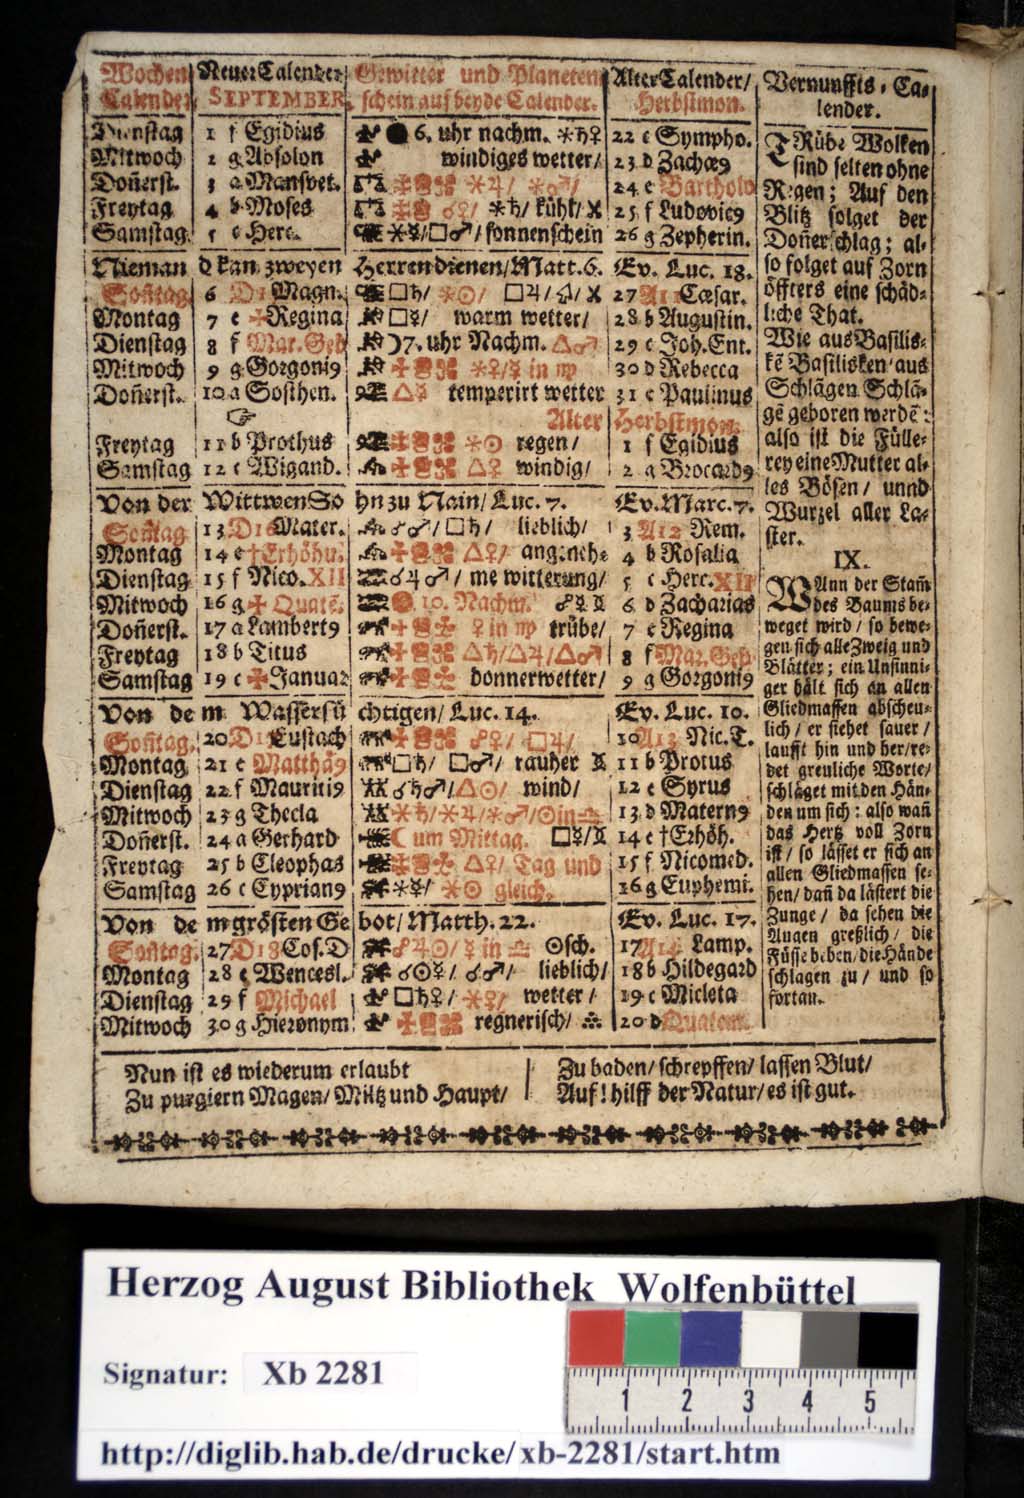 Wochen Neuer Calender Gewitter und Planeten Alter Calender/ Vernunffts-Ca-
Calender SEPTEMBER. schein auf beyde Calender. Herbstmon. lender.
Dienstag 1 f Egidius 6. uhr nachm. ⚹♄♀ 22 c Sympho.
Mittwoch 2 g Absolon windiges wetter/ 23 d Zachæ9
Doñerst. 3 a Mansvet. ⚹♃/ ⚹♂/ 24 e Bartholo
Freytag 4 b Moses ☌♀/ ⚹♄/ kühl/ 25 f Ludovic9
Samstag 5 c Herc. ⚹☿/□♂/ sonnenschein 26 g Zepherin.
Nieman d kan zweyen Herren dienen/ Matt. 6. Ev. Luc. 18.
Soñtag 6 Magn. □♄/ ⚹☉/ □♃/ 27 Cæsar.
Montag 7 e ✠Regina □☿/ warm wetter/ 28 b Augustin.
Dienstag 8 f Mar. Geb ☽7. uhr Nachm. △♂ 29 c Joh. Ent.
Mittwoch 9 g Gorgoni9 ⚹♀/☿ in ♍ 30 d Rebecca
Doñerst. 10 a Sosthen. △☿ temperirt wetter 31 e Paulinus
☞ Alter Herbstmon.
Freytag 11 b Prothus ⚹☉ regen/ 1 f Egidius
Samstag 12 c Wigand. △♀ windig/ 2 a Brocard9
Von der Wittwen So hn zu Nain/ Luc. 7. Ev. Marc. 7.
Soñtag 13 Mater. ☌♂/ □♄/ lieblich/ 3 A12 Rem.
Montag 14 e †Erhöhu. △♀/ angeneh- 4 b Rosalia
Dienstag 15 f Nico. XII ☌♃♂/ me witterung/ 5 c Herc. XII
Mittwoch 16 g ✠ Quate. 10. Nachm. 6 d Zacharias
Doñerst. 17 a Lambert9 ♀ in ♍ trübe/ 7 e Regina
Freytag 18 b Titus △♄/△♃/△♂ 8 f Mar. Geb.
Samstag 19 c ✠Januar donnerwetter/ 9 g Gorgoni9
Von de m Wassersü chtigen/ Luc. 14. Ev. Luc. 10.
Soñtag. 20 Eustach ☍♀/ □♃/ 10 A13 Nic. T.
Montag 21 e Matthä9 □♄/ □♂/ rauher 11 b Protus
Dienstag 22 f Mauriti9 ☌♄♂/△☉/ wind/ 12 c Syrus
Mittwoch 23 g Thecla ⚹♄/⚹♃/⚹♂/☉in♎ 13 d Matern9
Doñerst. 24 a Gerhard ☾ um Mittag. □☿/ 14 e †Erhöh.
Freytag 25 b Cleophas △♀/ Tag und 15 f Nicomed.
Samstag 26 c Cyprian9 ⚹☿/ ⚹☉ gleich. 16 g Euphemi.
Von de m grösten Ge bot/ Matth. 22. Ev. Luc. 17.
Soñtag. 27 D18 Cos. D ☍♃☉/ ☿ in ♎ ☉sch. 17 A14 Lamp.
Montag 28 e Wencesl. ☌☉☿/ ☌♂/ lieblich/ 18 b Hildegard
Dienstag 29 f Michael □♄♀/ ⚹♀/ wetter/ 19 c Micleta
Mitwoch 30 g Hieronym regnerisch/ 20 d Quatem.
TRübe Wolken
sind selten ohne
Regen; Auf den
Blitz folget der
Doñerschlag; al-
so folget auf Zorn
öffters eine schäd-
liche That.
Wie aus Basilis-
kē Basilisken/ aus
Schlägen Schlä-
gē geboren werdē:
also ist die Fülle-
rey eine Mutter al-
les Bösen/ unnd
Wurzel aller La-
ster.
IX.
WAnn der Stam̃
des Baums be-
weget wird/ so bewe-
gen sich alle Zweig und
Blätter; ein Unsinni-
ger hält sich an allen
Gliedmassen abscheu-
lich/ er siehet sauer/
laufft hin und her/re-
det greuliche Worte/
schläget mit den Hän-
den um sich: also wañ
das Hertz voll Zorn
ist/ so lässet er sich an
allen Gliedmassen se-
hen/ dañ da lästert die
Zunge/ da sehen die
Augen greßlich/ die
Füsse beben/ die Hände
schlagen zu/ und so
fortan.
Nun ist es wiederum erlaubt
Zu purgiern Magen/ Miltz und Haupt/
Zu baden/ schrepffen/ lassen Blut/
Auf! hilff der Natur/ es ist gut.
Herzog August Bibliothek Wolfenbüttel
Signatur: Xb 2281
1 2 3 4 5
http://diglib.hab.de/drucke/xb-2281/start.htm